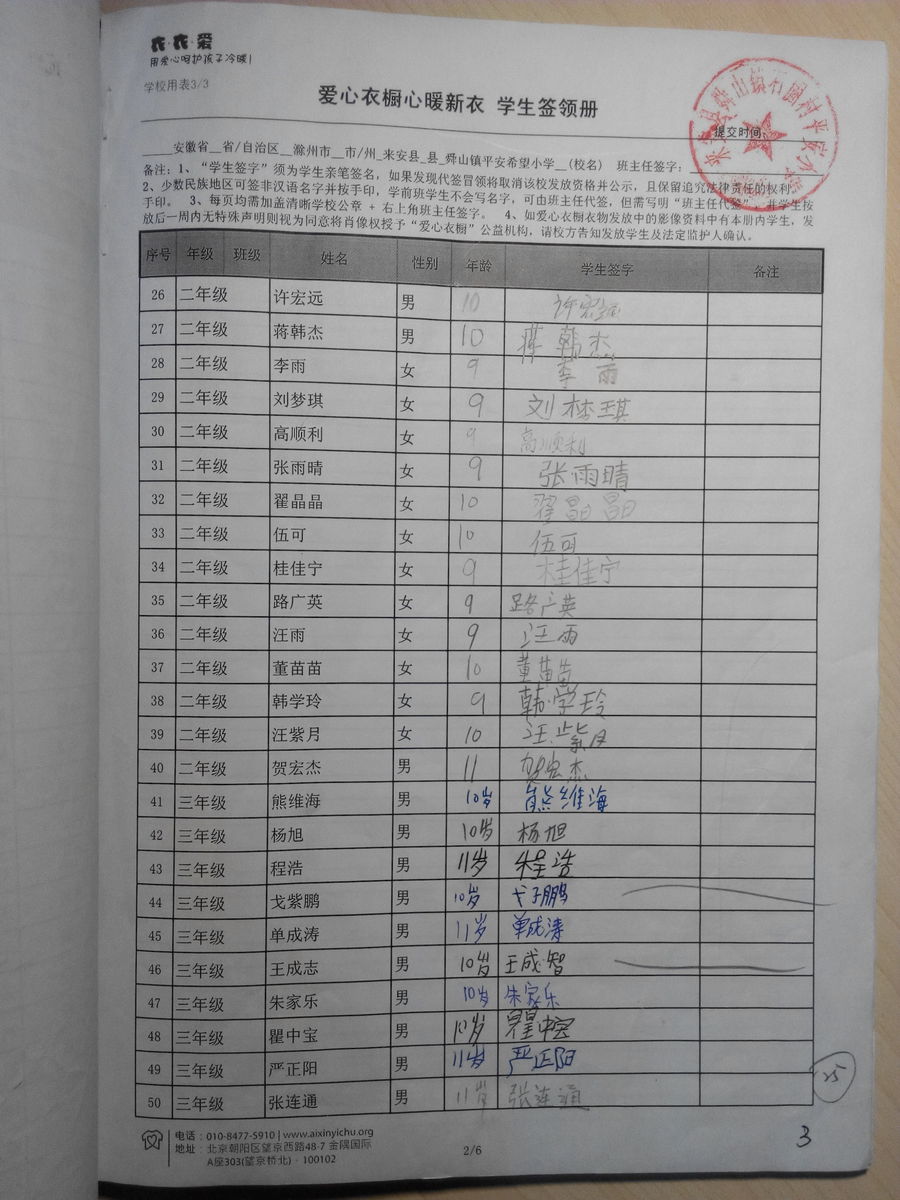 衣·衣·爱
用爱心呵护孩子冷暖!
学校用表3/3
爱心衣橱心暖新衣 学生签领册
提交时间:
____安徽省__省/自治区__滁州市__市/州_来安县_县_舜山镇平安希望小学__(校名) 班主任签字:
备注:1、“学生签字”须为学生亲笔签名,如果发现代签冒领将取消该校发放资格并公示,且保留追究法律责任的权利。
2、少数民族地区可签非汉语名字并按手印,学前班学生不会写名字,可由班主任代签,但需写明“班主任代签”,并学生按
手印。 3、每页均需加盖清晰学校公章+右上角班主任签字。 4、如爱心衣橱衣物发放中的影像资料中有本册内学生,发
放后一周内无特殊声明则视为同意将肖像权授予“爱心衣橱”公益机构,请校方告知发放学生及法定监护人确认。
序号 年级 班级 姓名 性别 年龄 学生签字 备注
26 二年级 许宏远 男 10 许宏远
27 二年级 蒋韩杰 男 10 蒋韩杰
28 二年级 李雨 女 9 李雨
29 二年级 刘梦琪 女 9 刘梦琪
30 二年级 高顺利 女 9 高顺利
31 二年级 张雨晴 女 9 张雨晴
32 二年级 翟晶晶 女 10 翟晶晶
33 二年级 伍可 女 10 伍可
34 二年级 桂佳宁 女 9 桂佳宁
35 二年级 路广英 女 9 路广英
36 二年级 汪雨 女 9 汪雨
37 二年级 董苗苗 女 10 董苗苗
38 二年级 韩学玲 女 9 韩学玲
39 二年级 汪紫月 女 10 汪紫月
40 二年级 贺宏杰 男 11 贺宏杰
41 三年级 熊维海 男 10岁 熊维海
42 三年级 杨旭 男 10岁 杨旭
43 三年级 程浩 男 11岁 程浩
44 三年级 戈紫鹏 男 10岁 戈子鹏
45 三年级 单成涛 男 11岁 单成涛
46 三年级 王成志 男 10岁 王成智
47 三年级 朱家乐 男 10岁 朱家乐
48 三年级 瞿中宝 男 瞿中宝
49 三年级 严正阳 男 11岁 严正阳
50 三年级 张连通 男 11岁 张连通
25
3
电话:010-8477-5910 | www.aixinyichu.org
地址:北京朝阳区望京西路48-7 金隅国际
A座303(望京桥北)·100102
2/6